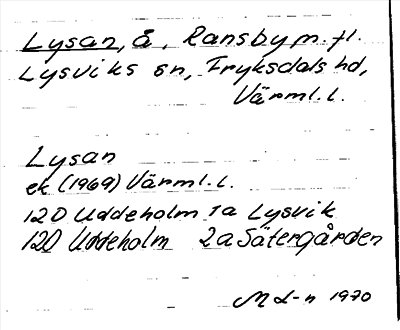 Lysan, å, Ransby m. fl.
Lysviks sn, Fryksdals hd,
Värml. l.
Lysan
ek (1969) Värml. l.
12D Uddeholm 1a Lysvik
12D Uddeholm 2a Sätergården
M L-n 1970